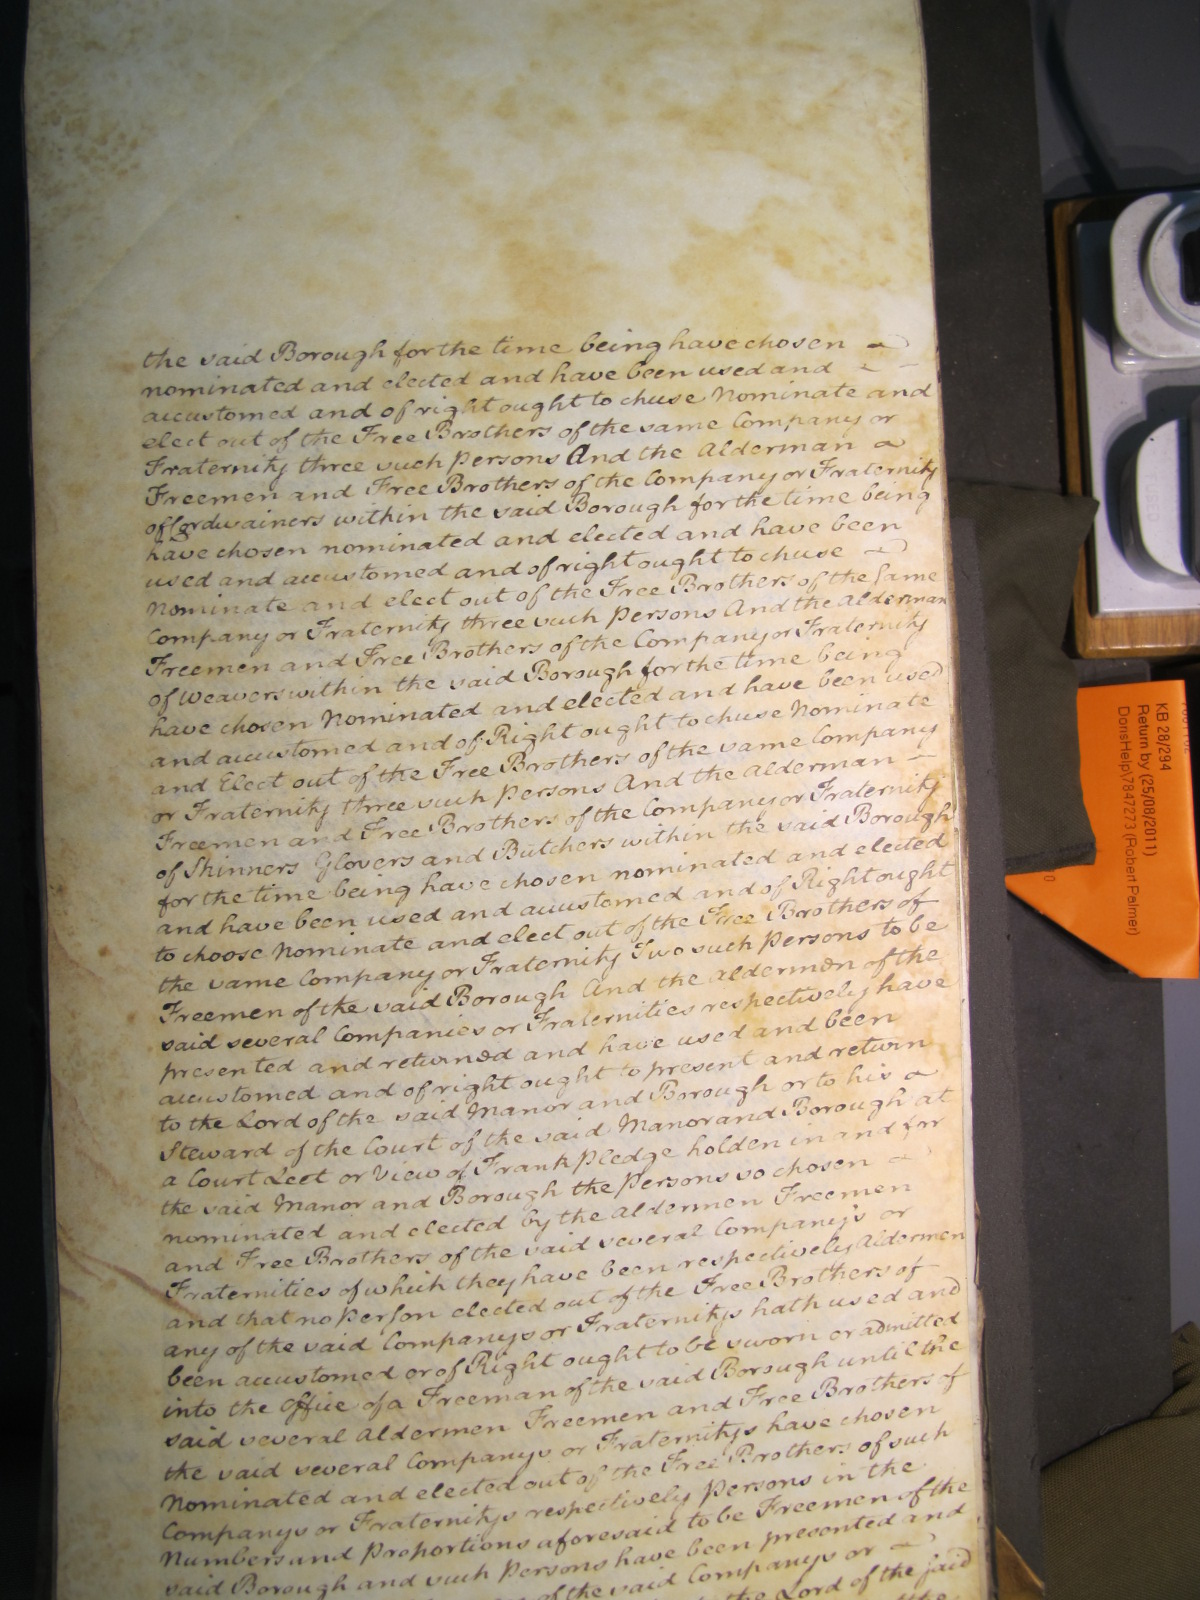 the said Borough for the time being have chosen
nominated and elected and have been used and
accustomed and of right ought to chuse Nominate and
elect out of the Free Brothers of the same Company or
Fraternity three such Persons And the Alderman
Freemen and Free Brothers of the Company or Fraternity
of Cordwainers within the said Borough for the time being
have chosen nominated and elected and have been
used and accustomed and of right ought to chuse
Nominate and elect out of the Free Brothers of the same
Company or Fraternity three such Persons And the Alderman
Freemen and Free Brothers of the Company or Fraternity
of Weavers within the said Borough for the time being
have chosen Nominated and elected and have been used
and accustomed and of Right ought to chuse Nominate
and Elect out of the Free Brothers of the same Company
or Fraternity three such Persons And the Alderman
Freemen and Free Brothers of the Company or Fraternity
of Skinners Glovers and Butchers within the said Borough
for the time being have chosen nominated and elected
and have been used and accustomed and of Right ought
to choose Nominate and elect out of the Free Brothers of
the same Company or Fraternity Two such Persons to be
Freemen of the said Borough And the Aldermen of the
said several Companies or Fraternities respectively have
presented and returned and have used and been
accustomed and of right ought to present and return
to the Lord of the said Manor and Borough or to his
Steward of the Court of the said Manor and Borough at
a Court Leet or View of Frank Pledge holden in and for
the said Manor and Borough the Persons so chosen
nominated and elected by the Aldermen Freemen
and Free Brothers of the said several Companys or
Fraternities of which they have been respectively Aldermen
and that no Person elected out of the Free Brothers of
any of the said Companys or Fraternitys hath used and
been accustomed or of Right ought to be sworn or admitted
into the Office of a Freeman of the said Borough until the
said several Aldermen Freemen and Free Brothers of
the said several Companys or Fraternitys have chosen
Nominated and elected out of the Free Brothers of such
Companys or Fraternitys respectively Persons in the
Numbers and Proportions aforesaid to be Freemen of the
said Borough and such Persons have been presented and
of the said Companys or
Lord of the said
KB 28/294
Return by (25/08/2011)
DorisHelp\7847273 (Robert Palmer)